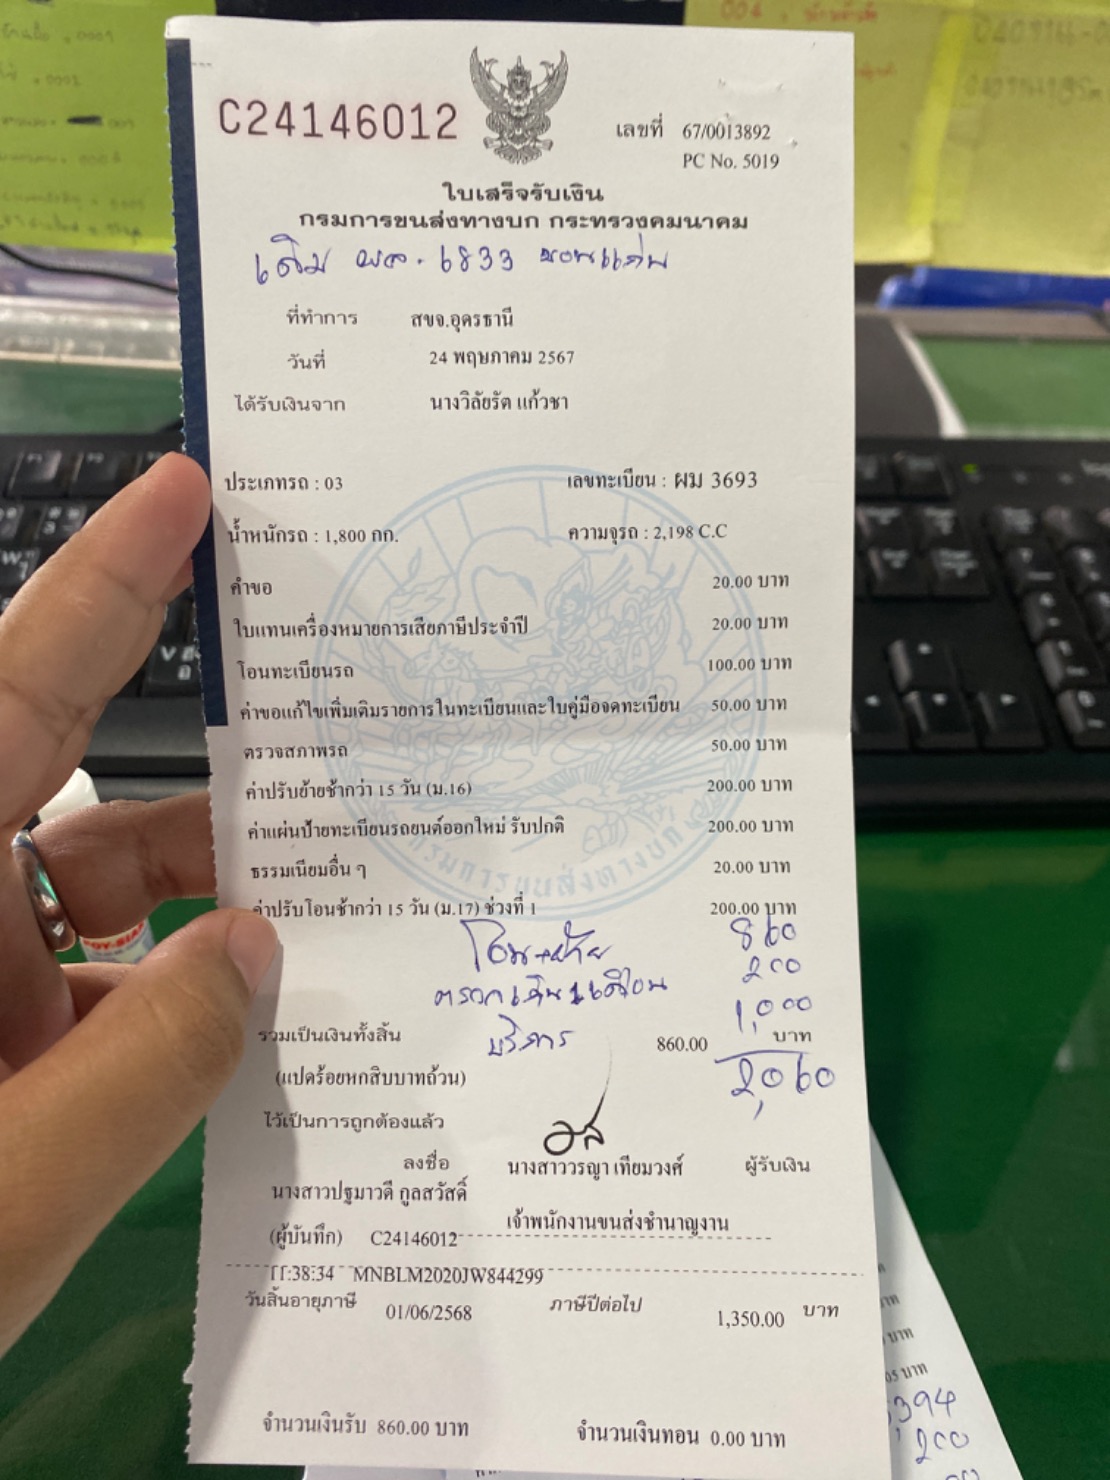 C24146012
เลขที่ 67/0013892
PC No. 5019
ใบเสร็จรับเงิน
กรมการขนส่งทางบก กระทรวงคมนาคม
เดิม ผล. 6833 ขอนแก่น
ที่ทำการ สขจ.อุดรธานี
วันที่ 24 พฤษภาคม 2567
ได้รับเงินจาก นางวิลัยรัต แก้วชา
ประเภทรถ : 03 เลขทะเบียน : ผม 3693
น้ำหนักรถ : 1,800 กก. ความจุรถ : 2,198 C.C
คำขอ 20.00 บาท
ใบแทนเครื่องหมายการเสียภาษีประจำปี 20.00 บาท
โอนทะเบียนรถ 100.00 บาท
ค่าขอแก้ไขเพิ่มเติมรายการในทะเบียนและใบคู่มือจดทะเบียน 50.00 บาท
ตรวจสภาพรถ 50.00 บาท
ค่าปรับย้ายช้ากว่า 15 วัน (ม.16) 200.00 บาท
ค่าแผ่นป้ายทะเบียนรถยนต์ออกใหม่ รับปกติ 200.00 บาท
ธรรมเนียมอื่น ๆ 20.00 บาท
ค่าปรับโอนช้ากว่า 15 วัน (ม.17) ช่วงที่ 1 200.00 บาท
โอน+ย้าย 860
ตรวจเกิน 1 เดือน 200
บริการ 1,000
รวมเป็นเงินทั้งสิ้น 860.00 บาท
2,060
(แปดร้อยหกสิบบาทถ้วน)
ไว้เป็นการถูกต้องแล้ว
ลงชื่อ นางสาววรญา เทียมวงศ์ ผู้รับเงิน
นางสาวปฐมาวดี กูลสวัสดิ์
เจ้าพนักงานขนส่งชำนาญงาน
(ผู้บันทึก) C24146012
11:38:34 MNBLM2020JW844299
วันสิ้นอายุภาษี 01/06/2568 ภาษีปีต่อไป 1,350.00 บาท
จำนวนเงินรับ 860.00 บาท จำนวนเงินทอน 0.00 บาท
กรมการขนส่งทางบก